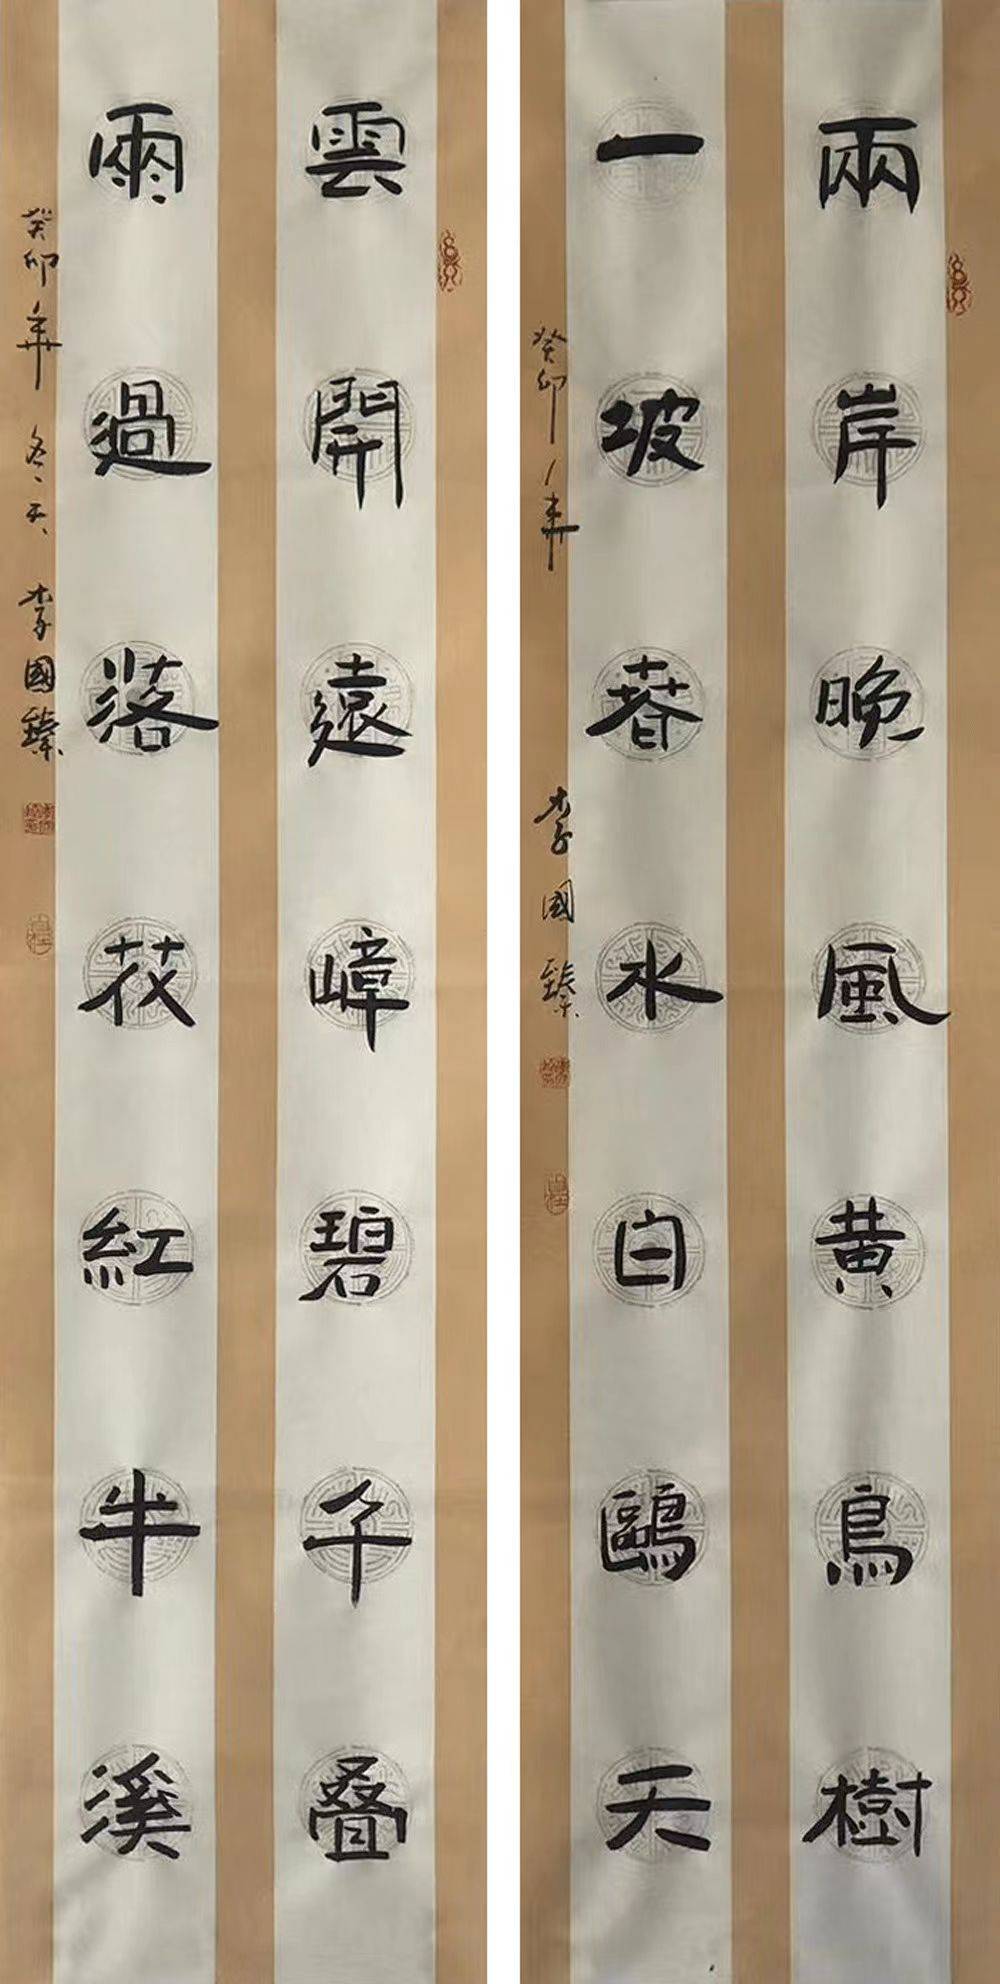 兩岸晚風黄鳥樹
一坡春水白鷗天
癸卯年 李國臻
雲開遠嶂碧千叠
雨過落花紅半溪
癸卯年冬天 李國臻